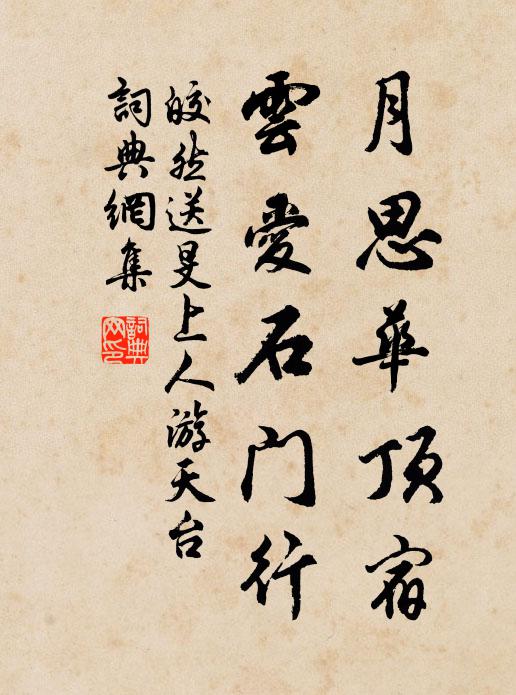 月思華顶宿
雲愛石门行
皎然送旻上人游天台
詞典網集
詞典网印